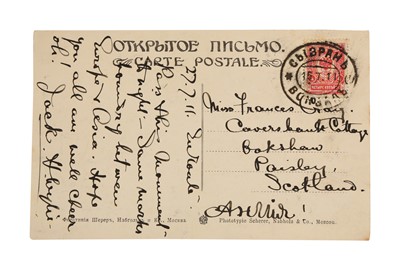 ОТКРЫТОЕ ПИСЬМО.
CARTE POSTALE
СЫЗРАНЬ
27.7.11.
Pass this Monument
tonight - Same marks
boundary between
Europe & Asia. Hope
you all are well. Cheer
oh! Jack
Miss Frances
Caversbank Cottage
Oakshaw
Paisley
Scotland.
Англія!
Фототипія Шереръ, Набгольцъ и Ко., Москва
Phototypie Scherer, Nabholz & Co., Moscou.